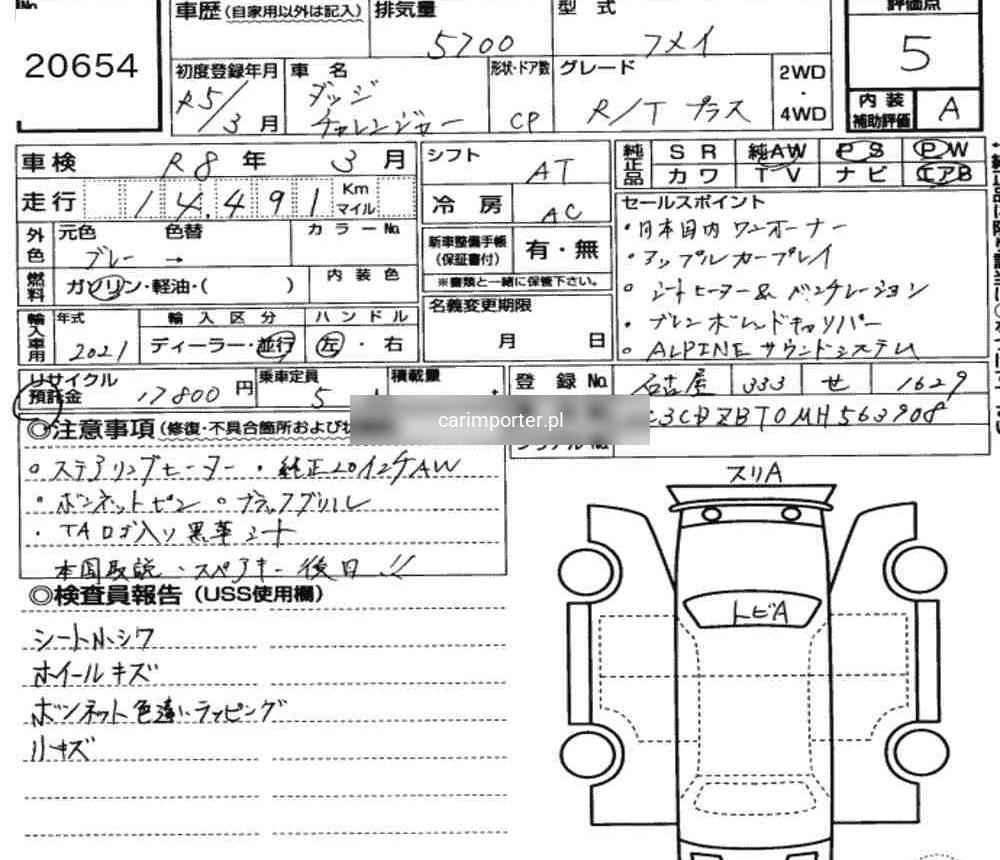 No.
20654
車歴(自家用以外は記入)
排気量 5700
型式 フメイ
評価点 5
初度登録年月 R5/3月
車名 ダッジ チャレンジャー
形状・ドア数 CP
グレード R/T プラス
2WD・4WD
内装補助評価 A
車検 R8年 3月
走行 14,491 Km マイル
シフト AT
冷房 AC
純正品 SR 純AW PS PW
カワ TV ナビ エアB
外色 元色 色替 カラーNo.
グレー →
燃料 ガソリン・軽油・( )
内装色
新車整備手帳(保証書付) 有・無
※書類と一緒に保管下さい。
名義変更期限
月 日
セールスポイント
・日本国内ワンオーナー
・アップルカープレイ
○シートヒーター&ベンチレーション
・ブレンボレッドキャリパー
○ALPINEサウンドシステム
輸入車用 年式 2021
輸入区分 ディーラー・並行
ハンドル 左・右
リサイクル預託金 17800円
乗車定員 5人
積載量
登録No. 名古屋 333 せ 1629
C3CDZBT0MH563908
carimporter.pl
◎注意事項(修復・不具合箇所および状
○ステアリングヒーター ・純正20インチAW
・ボンネットピン ○ブラックグリル
・TAロゴ入り黒革シート
本国取説・スペアキー後日!!
◎検査員報告(USS使用欄)
シート小シワ
ホイールキズ
ボンネット色違いラッピング
小キズ
スリA
トビA